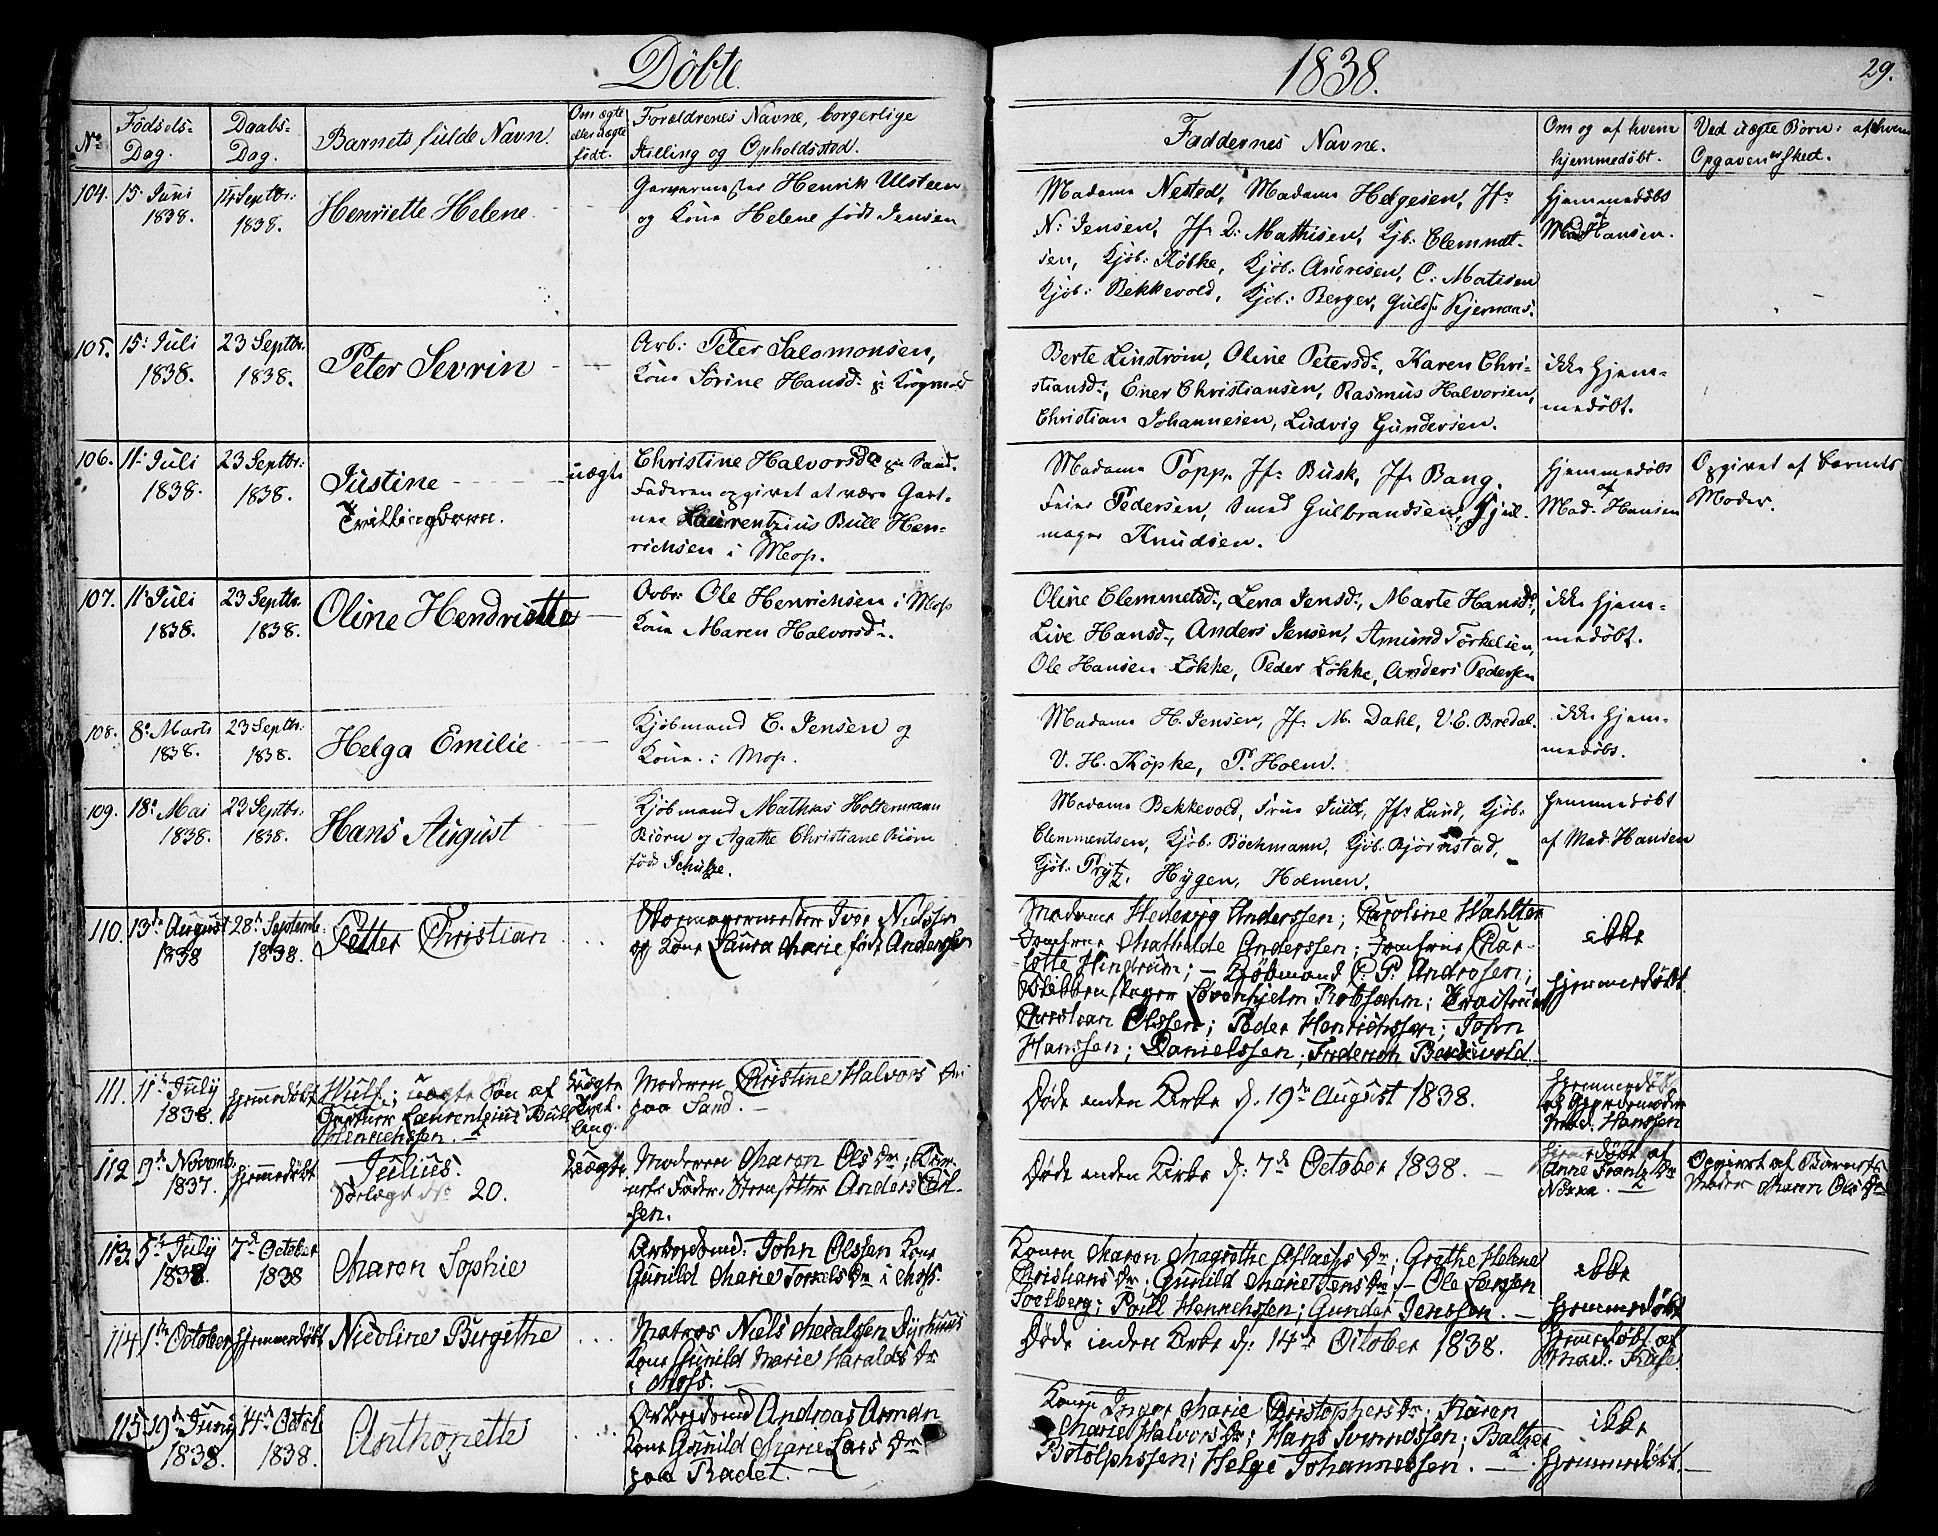 Døbte
1838.
29.
No
Fødsels-
Dag.
Daabs-
Dag.
Barnets fulde Navn.
Om ægte
eller uægte
født.
Forældrenes Navne, borgerlige
Stilling og Opholdssted.
Faddernes Navne.
Om og af hvem
hjemmedøbt.
Ved uægte Børn: af hvem
Opgaven er skeet.
104.
15. Juni
1838.
14 Septbr:
1838.
Henriette Helene
Garvermester Henrik Ulsteen
og Kone Helene født Jensen
Madame Nested, Madame Helgesen, Jfr
N: Jensen, Jfr D: Mathisen, Kjb: Clemmet-
sen, Kjøb: Købke, Kjøb: Andresen, C: Matisen
Kjøb: Bekkevold, Kjøb: Berger, Guld: Kjernaas.
hjemmedøbt
af
Mad Hansen.
105.
15. Juli
1838.
23 Septbr.
1838.
Peter Sevrin
Arb: Peter Salomonsen,
Kone Sorine Hansd: p: Krogvold
Berte Linstrøm, Oline Petersd:, Karen Chri-
stiansd:, Ener Christiansen, Rasmus Halvorsen,
Christian Johannesen, Ludvig Gundersen.
ikke hjem-
medøbt.
106.
11. Juli
1838.
23 Septbr:
1838.
Justine
Tvillingbarn.
uægte
Christine Halvorsda p: Sand.
Faderen opgivet at være Gart-
ner Laurentzius Bull Hen-
richsen i Moss.
Madame Popp, Jfr Busk, Jfr Bang,
Feier Pedersen, Smed Gulbrandsen, Hjul-
mager Knudsen.
hjemmedøbt
af
Mad. Hansen
Opgivet af Barnets
Moder.
107.
11. Juli
1838.
23 Septbr.
1838.
Oline Hendriette
Arbr: Ole Henrichsen i Moss
Kone Maren Halvorsd:.
Oline Clemmetsd:, Lena Jensd:, Marte Hansd:,
Live Hansd:, Anders Jensen, Amund Torkelsen,
Ole Hansen Løkke, Peder Løkke, Anders Pedersen
ikke hjem-
medøbt.
108.
8. Marts
1838.
23 Septbr:
1838.
Helga Emilie
Kjøbmand C. Jensen og
Kone i Moss.
Madame H. Jensen, Jfr M. Dahl, V. E. Bredal.
V. H. Köpke, P. Holm.
ikke hjem-
medøbt.
109.
18. Mai
1838.
23 Septbr:
1838.
Hans August
Kjøbmand Mathias Holtermann
Biørn og Agathe Christiane Biørn
født Schultze.
Madame Bekkevold, Frue Juul, Jfr Lund, Kjøb:
Clemmentsen, Kjøb: Bóchmann, Kjøb: Bjørnstad,
Kjøb: Prytz, Hygen, Holmen.
hjemmedøbt
af Mad. Hansen
110.
13de August
1838
28de Septemb:
1838.
Petter Christian
Skomagermester Iver Nielssen
og Kone Laura Marie født Anderssen
Madame Hedevig Anderssen; Caroline Wahlter
Jomfrue Mathilde Anderssen; Jomfrue Char-
lotte Hindrum; - Kjøbmand C. P. Andresen;
Blikkenslager Løvenhjelm Robsahm;
Christian Olssen; Peder Henrichssen; John
Hanssen; Danielssen; Frederich Bekkevold
ikke
hjemmedøbt
111.
11te July
1838.
hjemmedøbt
Wulf; uægte Søn af
Gartner Laurentzius Bull
Henrichssen.
Uægte
Tvil-
ling.
Moderen Christine Halvors Dr
paa Sand.
Døde inden Kirke d. 19de August 1838.
hjemmedøbt
af Gjordemoder
Mad. Hanssen
112
9de Novemb.
1837.
hjemmedøbt
Julius.
No 20.
Uægte
Moderen Maren Ols Dr; Bar-
nets Fader: Steensetter Anders Carl-
sen.
Døde inden Kirke d: 7de October 1838.
hjemmedøbt af
Anne Frantz Dr
Opgivet af Barnets
Moder Maren Ols Dr
113.
5te July
1838.
7de October
1838
Maren Sophie
Arbejdsmd: John Olssen Kone
Gunild Marie Torkels Dr i Moss.
Konen Maren Magrethe Aslachs Dr; Grethe Helene
Christians Dr; Gunild Marie Jens Dr; - Ole Larssen
Soelberg; Poul Henrichssen; Gunder Jenssen.
ikke
hjemmedøbt
114
1te October
hjemmedøbt
Nicoline Birgithe
Matros Niels Michalssen Dyrhuus
Kone Gunild Marie Haralds Dr
i Moss.
Døde inden Kirke d: 14de October 1838.
hjemmedøbt af
115.
19de Juny
1838.
14de Octob.
1838.
Anthonette
Arbejdsmd Andreas Arman
Kone Gunild Marie Lars Dr
paa Radet.
Konen Inger Marie Christophers Dr; Karen
Marie Halvors Dr; Hans Svendssen; Baltzer
Botolphssen; Helge Johannessen.
ikke
hjemmedøbt.